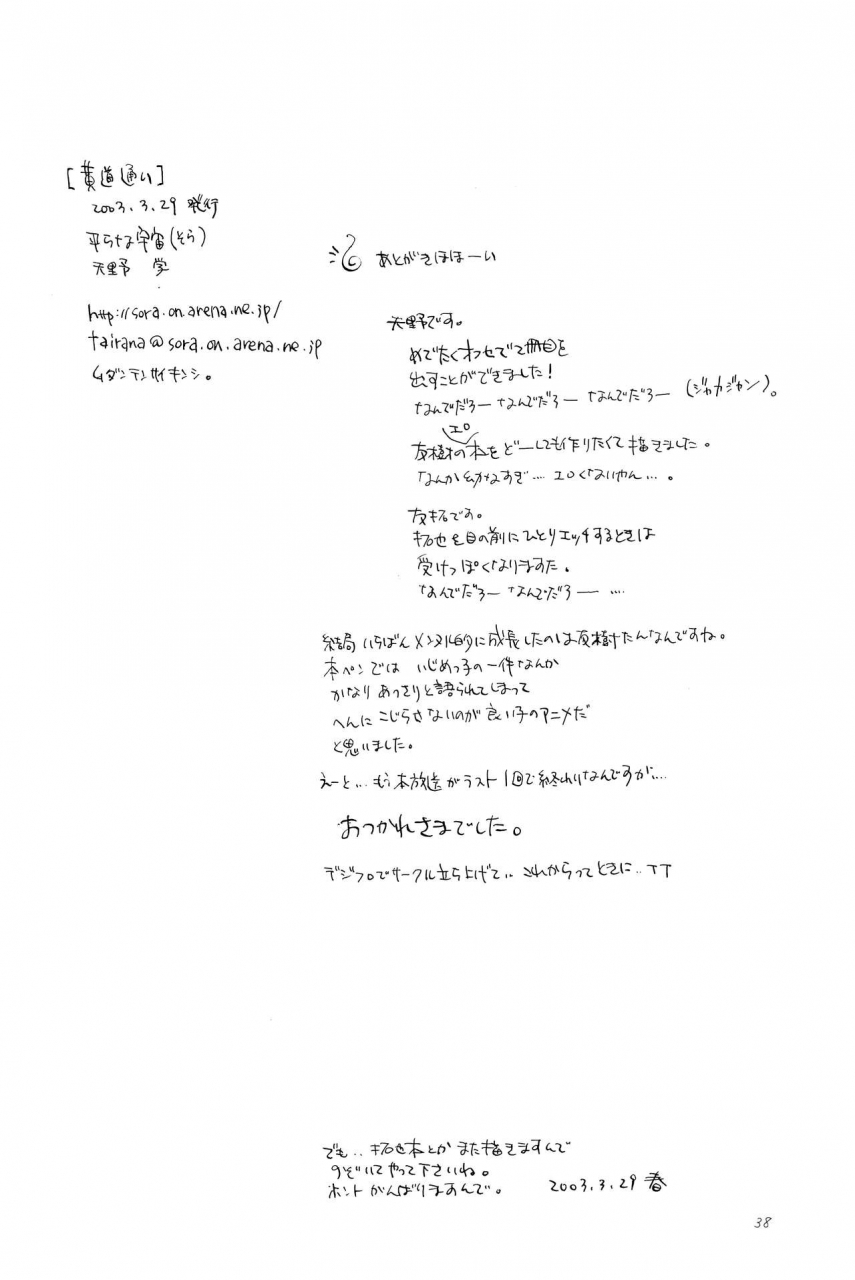 [黄道通い]
2003.3.29 発行
平らな宇宙(そら)
天野 学
http://sora.on.arena.ne.jp/
tairana@sora.on.arena.ne.jp
ムダンテンサイキンシ。
あとがきほほーい
天野です。
めでたくオフセで2冊目を
出すことができました!
なんでだろー なんでだろー なんでだろー (ジャカジャン)。
エロ
友樹の本をどーしても作りたくて描きました。
なんか幼なすぎ…. エロくないやん…。
友拓です。
拓也を目の前にひとりエッチするときは
受けっぽくなりますた。
なんでだろー なんでだろー ….
結局 いちばんメンタル的に成長したのは友樹たんなんですね。
本ペンでは いじめっ子の一件なんか
かなり あっさりと語られてしまって
へんに こじらさないのが良い子のアニメだ
と思いました。
えーと… もう本放送がラスト1回で終わりなんですが…
おつかれさまでした。
デジフロでサークル立ち上げて.. これからってときに.. TT
でも.. 拓也本とか また描きますんで
のぞいてやって下さいね。
ホント がんばりますんで。 2003.3.29 春
38